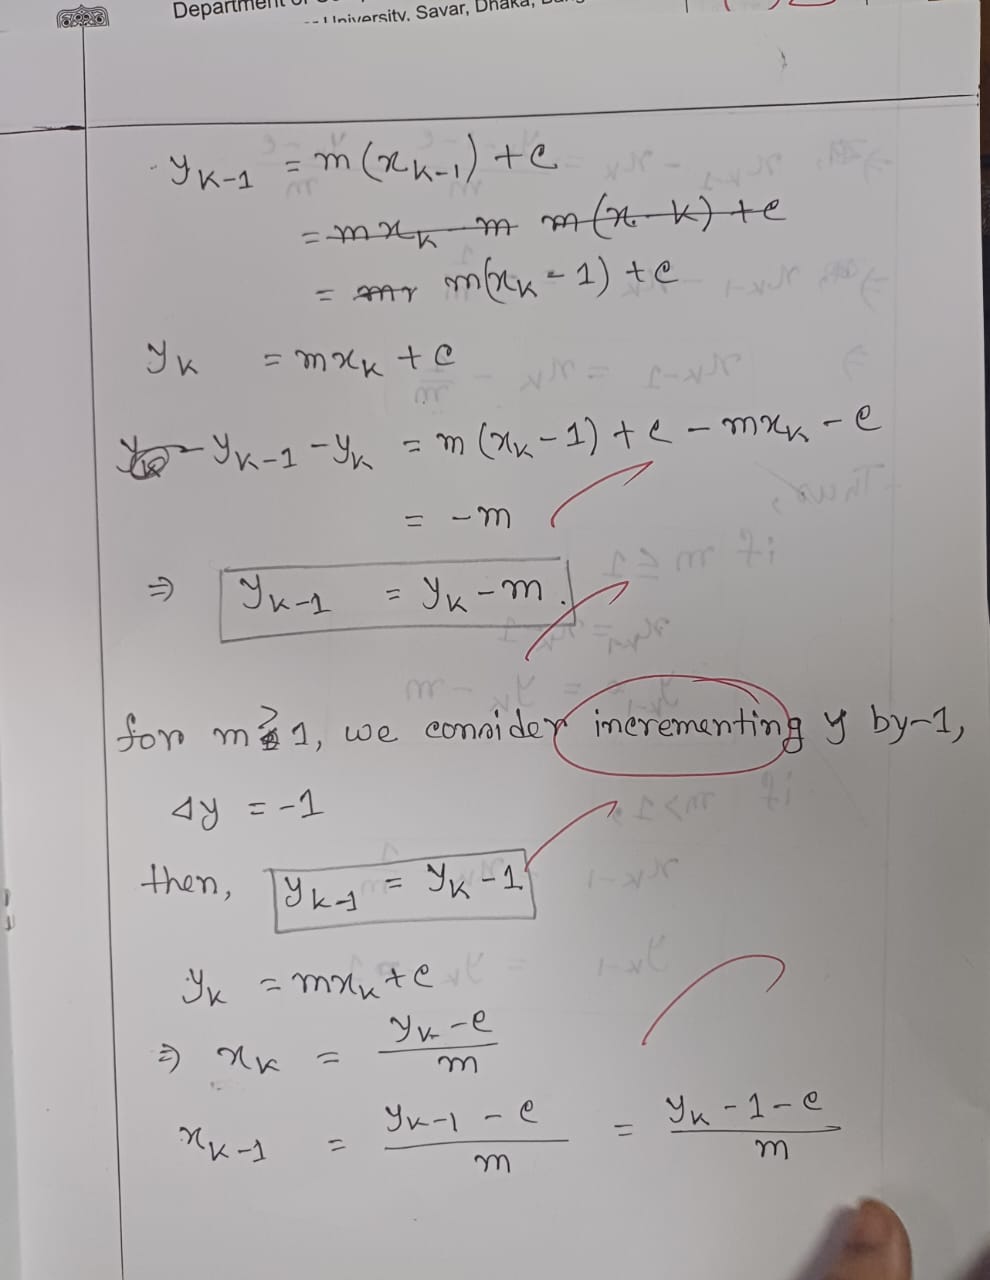 Department
University, Savar, Dhaka,
y_{k-1} = m(x_{k-1}) + c
= mx_k - m m(x - k) + c
= m(x_k - 1) + c
y_k = mx_k + c
y_{k-1} - y_k = m(x_k - 1) + c - mx_k - c
= -m
⇒ y_{k-1} = y_k - m.
for m > 1, we consider incrementing y by -1,
Δy = -1
then, y_{k-1} = y_k - 1
y_k = mx_k + c
⇒ x_k = \frac{y_k - c}{m}
x_{k-1} = \frac{y_{k-1} - c}{m} = \frac{y_k - 1 - c}{m}